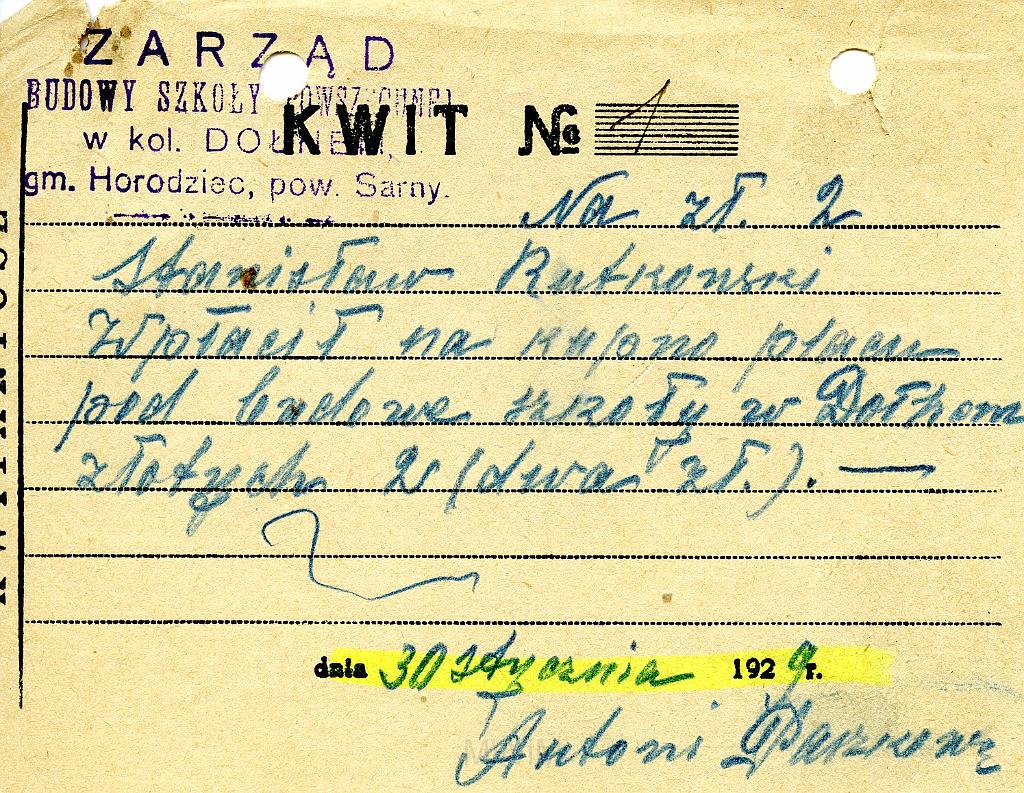 ZARZĄD
BUDOWY SZKOŁY POWSZECHNEJ
w kol. DOŁHEM,
gm. Horodziec, pow. Sarny.
KWIT № 1
Na zł. 2
Stanisław Rutkowski
Wpłacił na kupno placu
pod budowe szkoły w Dołhem
złotych 2 (dwa zł.). —
dnia 30 stycznia 1929 r.
Antoni